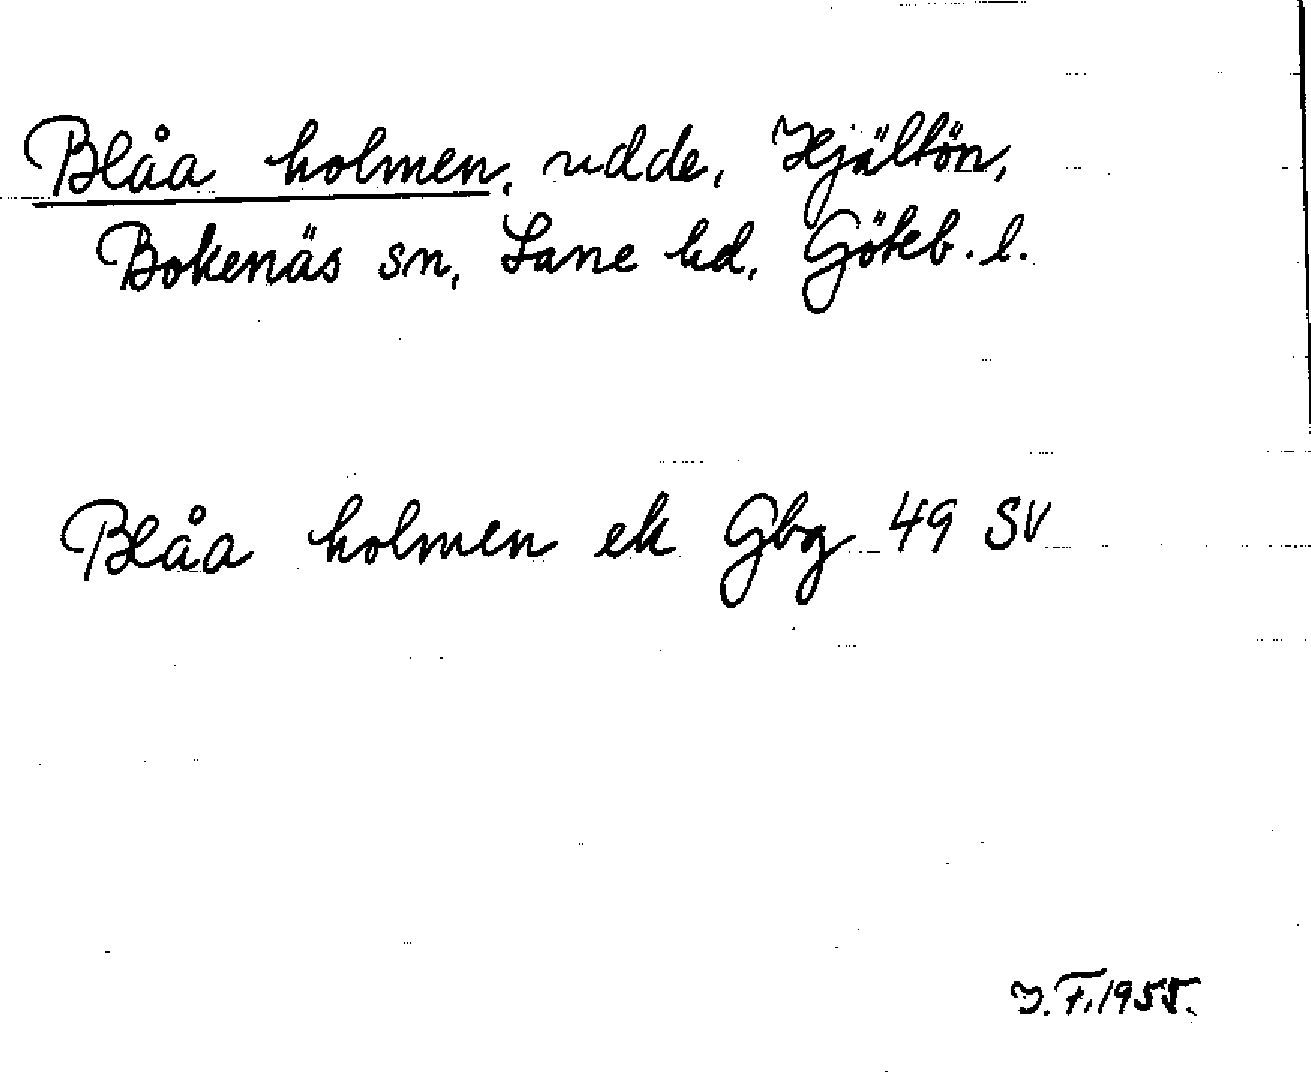 Blåa holmen, udde, Hjältön,
Bokenäs sn, Lane hd, Göteb. l.
Blåa holmen ek Gbg 49 SV
J. F. 1955.